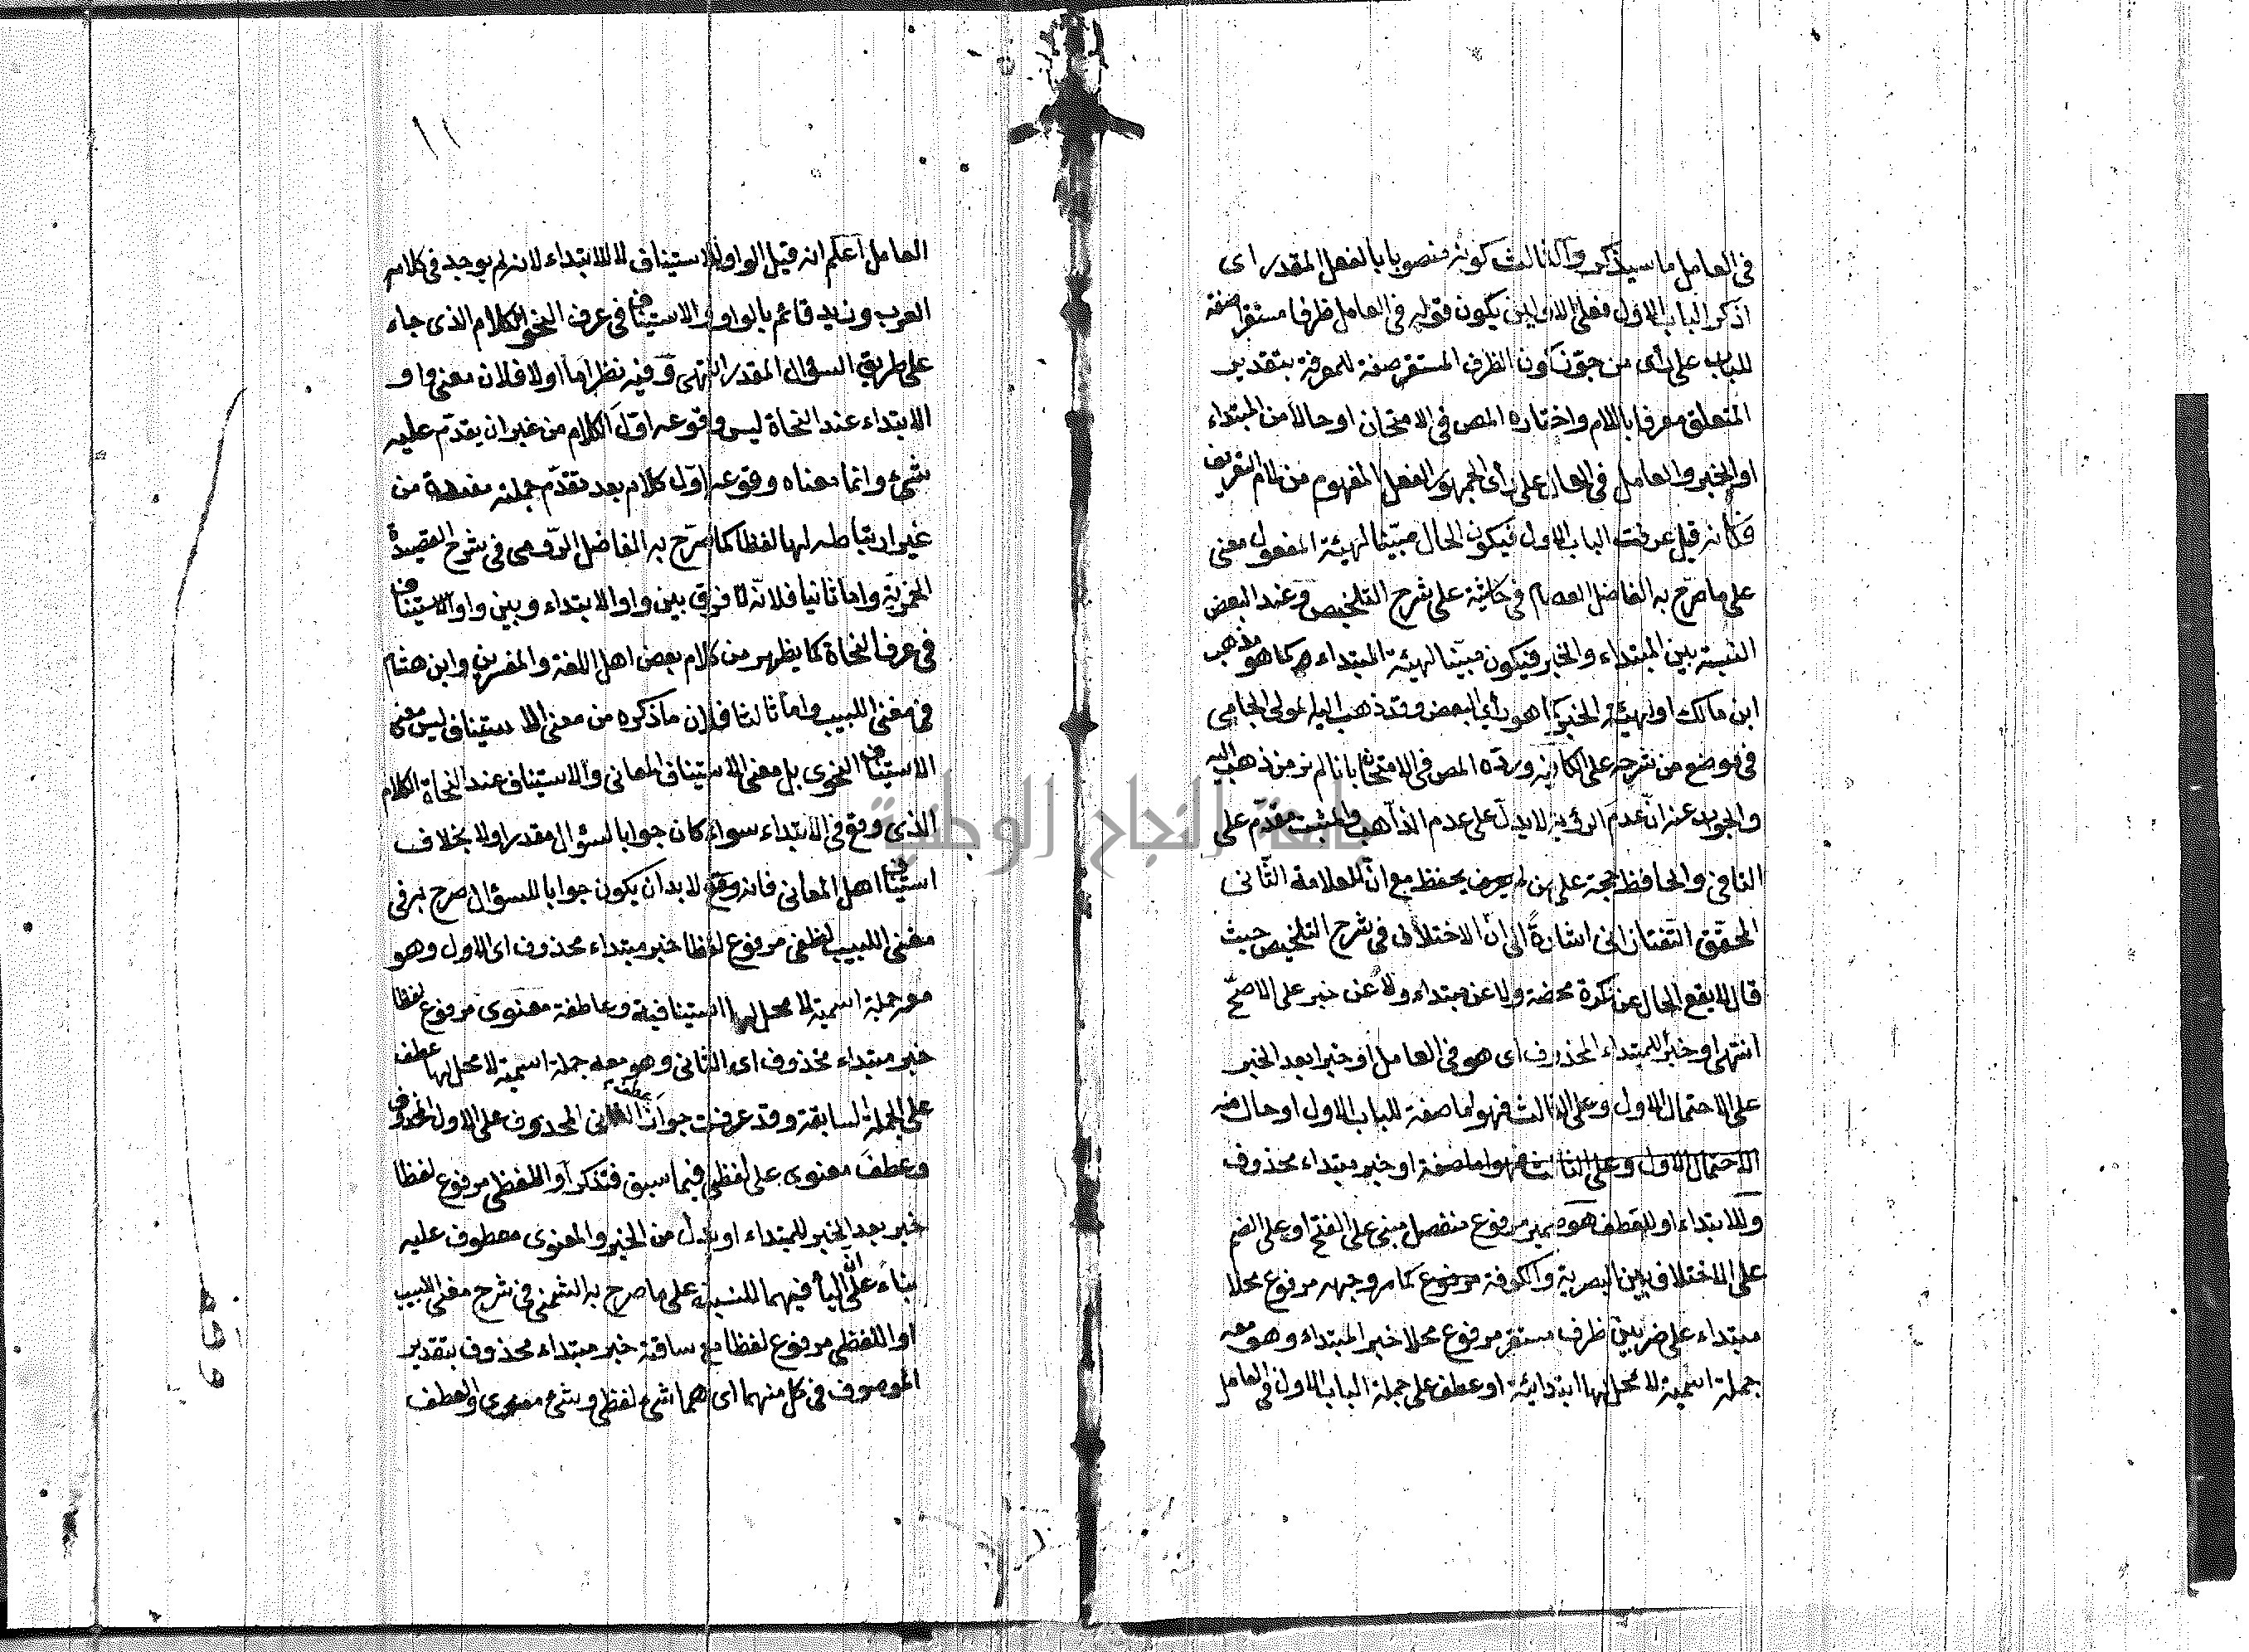 في العامل ما سيذكر والثالث كونه منصوبا بالفعل المقدر اى
اذكر الباب الاول فعلى الاولين يكون قوله في العامل ظرفا مستقرا صفة
للباب على رأى من جوّز كون الظرف المستقر صفة للمعرفة بتقدير
المتعلق معرفا باللام واختاره المص في الامتحان او حالا من المبتداء
او الخبر والعامل في الحال على رأى الجمهور الفعل المفهوم من لام التعريف
فكانه قيل عرفت الباب الاول فيكون الحال مبيّنا لهيئة المفعول معنى
على ما صرّح به الفاضل العصام في حاشية على شرح التلخيص وعند البعض
النسبة بين المبتداء والخبر فيكون مبيّنا لهيئة المبتداء كما هو مذهب
ابن مالك او لهيئة الخبر كما هو رأي البعض وقد ذهب اليه المولى الجامي
في موضع من شرحه على الكافية وردّه المص في الامتحان بانا لم نر من ذهب اليه
والجواب عنه انّ عدم الرؤية لا يدلّ على عدم الذاهب والمثبت مقدّم على
النافى والحافظ حجة على من لم يعرف يحفظ مع انّ للعلامة الثّانى
المحقّق التّفتازانى اشارة الى انّ الاختلاف في شرح التلخيص حيث
قال لا يقع الحال عن نكرة محضة ولا عن مبتداء ولا عن خبر على الاصحّ
انتهى او خبر للمبتداء المحذوف اى هو في العامل او خبرا بعد الخبر
على الاحتمال الاول وعلى الثالث فهو اما صفة للباب الاول او حال منه
الاحتمال الاول وعلى الثالث فهو اما صفة او خبر مبتداء محذوف
وللابتداء او للعطف هو ضمير مرفوع منفصل مبنى على الفتح او على الضم
على الاختلاف بين البصرية والكوفة مرفوع كما مر وجهه مرفوع محلا
مبتداء على ضربين ظرف مستقر مرفوع محلا خبر المبتداء وهو معه
جملة اسمية لا محل لها ابتدائية او عطف على جملة الباب الاول في العامل
١١
العامل اعلم انه قيل الواو للاستيناف لا للابتداء لانه لم يوجد في كلام
العرب وزيد قائم بالواو والاستيناف في عرف النحو الكلام الذى جاء
على طريق السؤال المقدر انتهى وفيه نظر اما اولا فلان معنى واو
الابتداء عند النحاة ليس وقوعه اوّل الكلام من غير ان يقدّم عليه
شئ وانما معناه وقوعه اوّل كلام بعد تقدّم جملة مفيدة من
غير ارتباط له لها لفظا كما صرّح به الفاضل الرّومى في شرح القصيدة
الخمريّة واما ثانيا فلانّه لا فرق بين واو الابتداء وبين واو الاستيناف
في عرف النحاة كما يظهر من كلام بعض اهل اللغة والمفسرين وابن هشام
في مغنى اللبيب واما ثالثا فلان ما ذكره من معنى الاستيناف ليس معنى
الاستيناف النحوى بل معنى الاستيناف المعانى والاستيناف عند النحاة الكلام
الذى وقع في الابتداء سواء كان جوابا لسؤال مقدر اولا بخلاف
استيناف اهل المعانى فانه لا بد ان يكون جوابا للسؤال صرح به في
مغنى اللبيب لفظى مرفوع لفظا خبر مبتداء محذوف اى الاول وهو
معه جملة اسمية لا محل لها استينافية وعاطفة معنوى مرفوع لفظا
خبر مبتداء محذوف اى الثانى وهو معه جملة اسمية لا محل لها عطف
على الجملة السابقة وقد عرفت جواز عطف الثانى المحذوف على الاول المحذوف
وعطف معنوى على لفظى فيما سبق فتذكر او اللفظى مرفوع لفظا
خبر بعد الخبر للمبتداء او بدل من الخبر والمعنوى معطوف عليه
بناءً على انّ اليأ فيهما للنسبة على ما صرح به الشمنى في شرح مغنى اللبيب
او اللفظى مرفوع لفظا مع ساقه خبر مبتداء محذوف بتقدير
الموصوف في كل منهما اى هما شئ لفظى وشئ معنوى والعطف
جامعة النجاح الوطنية